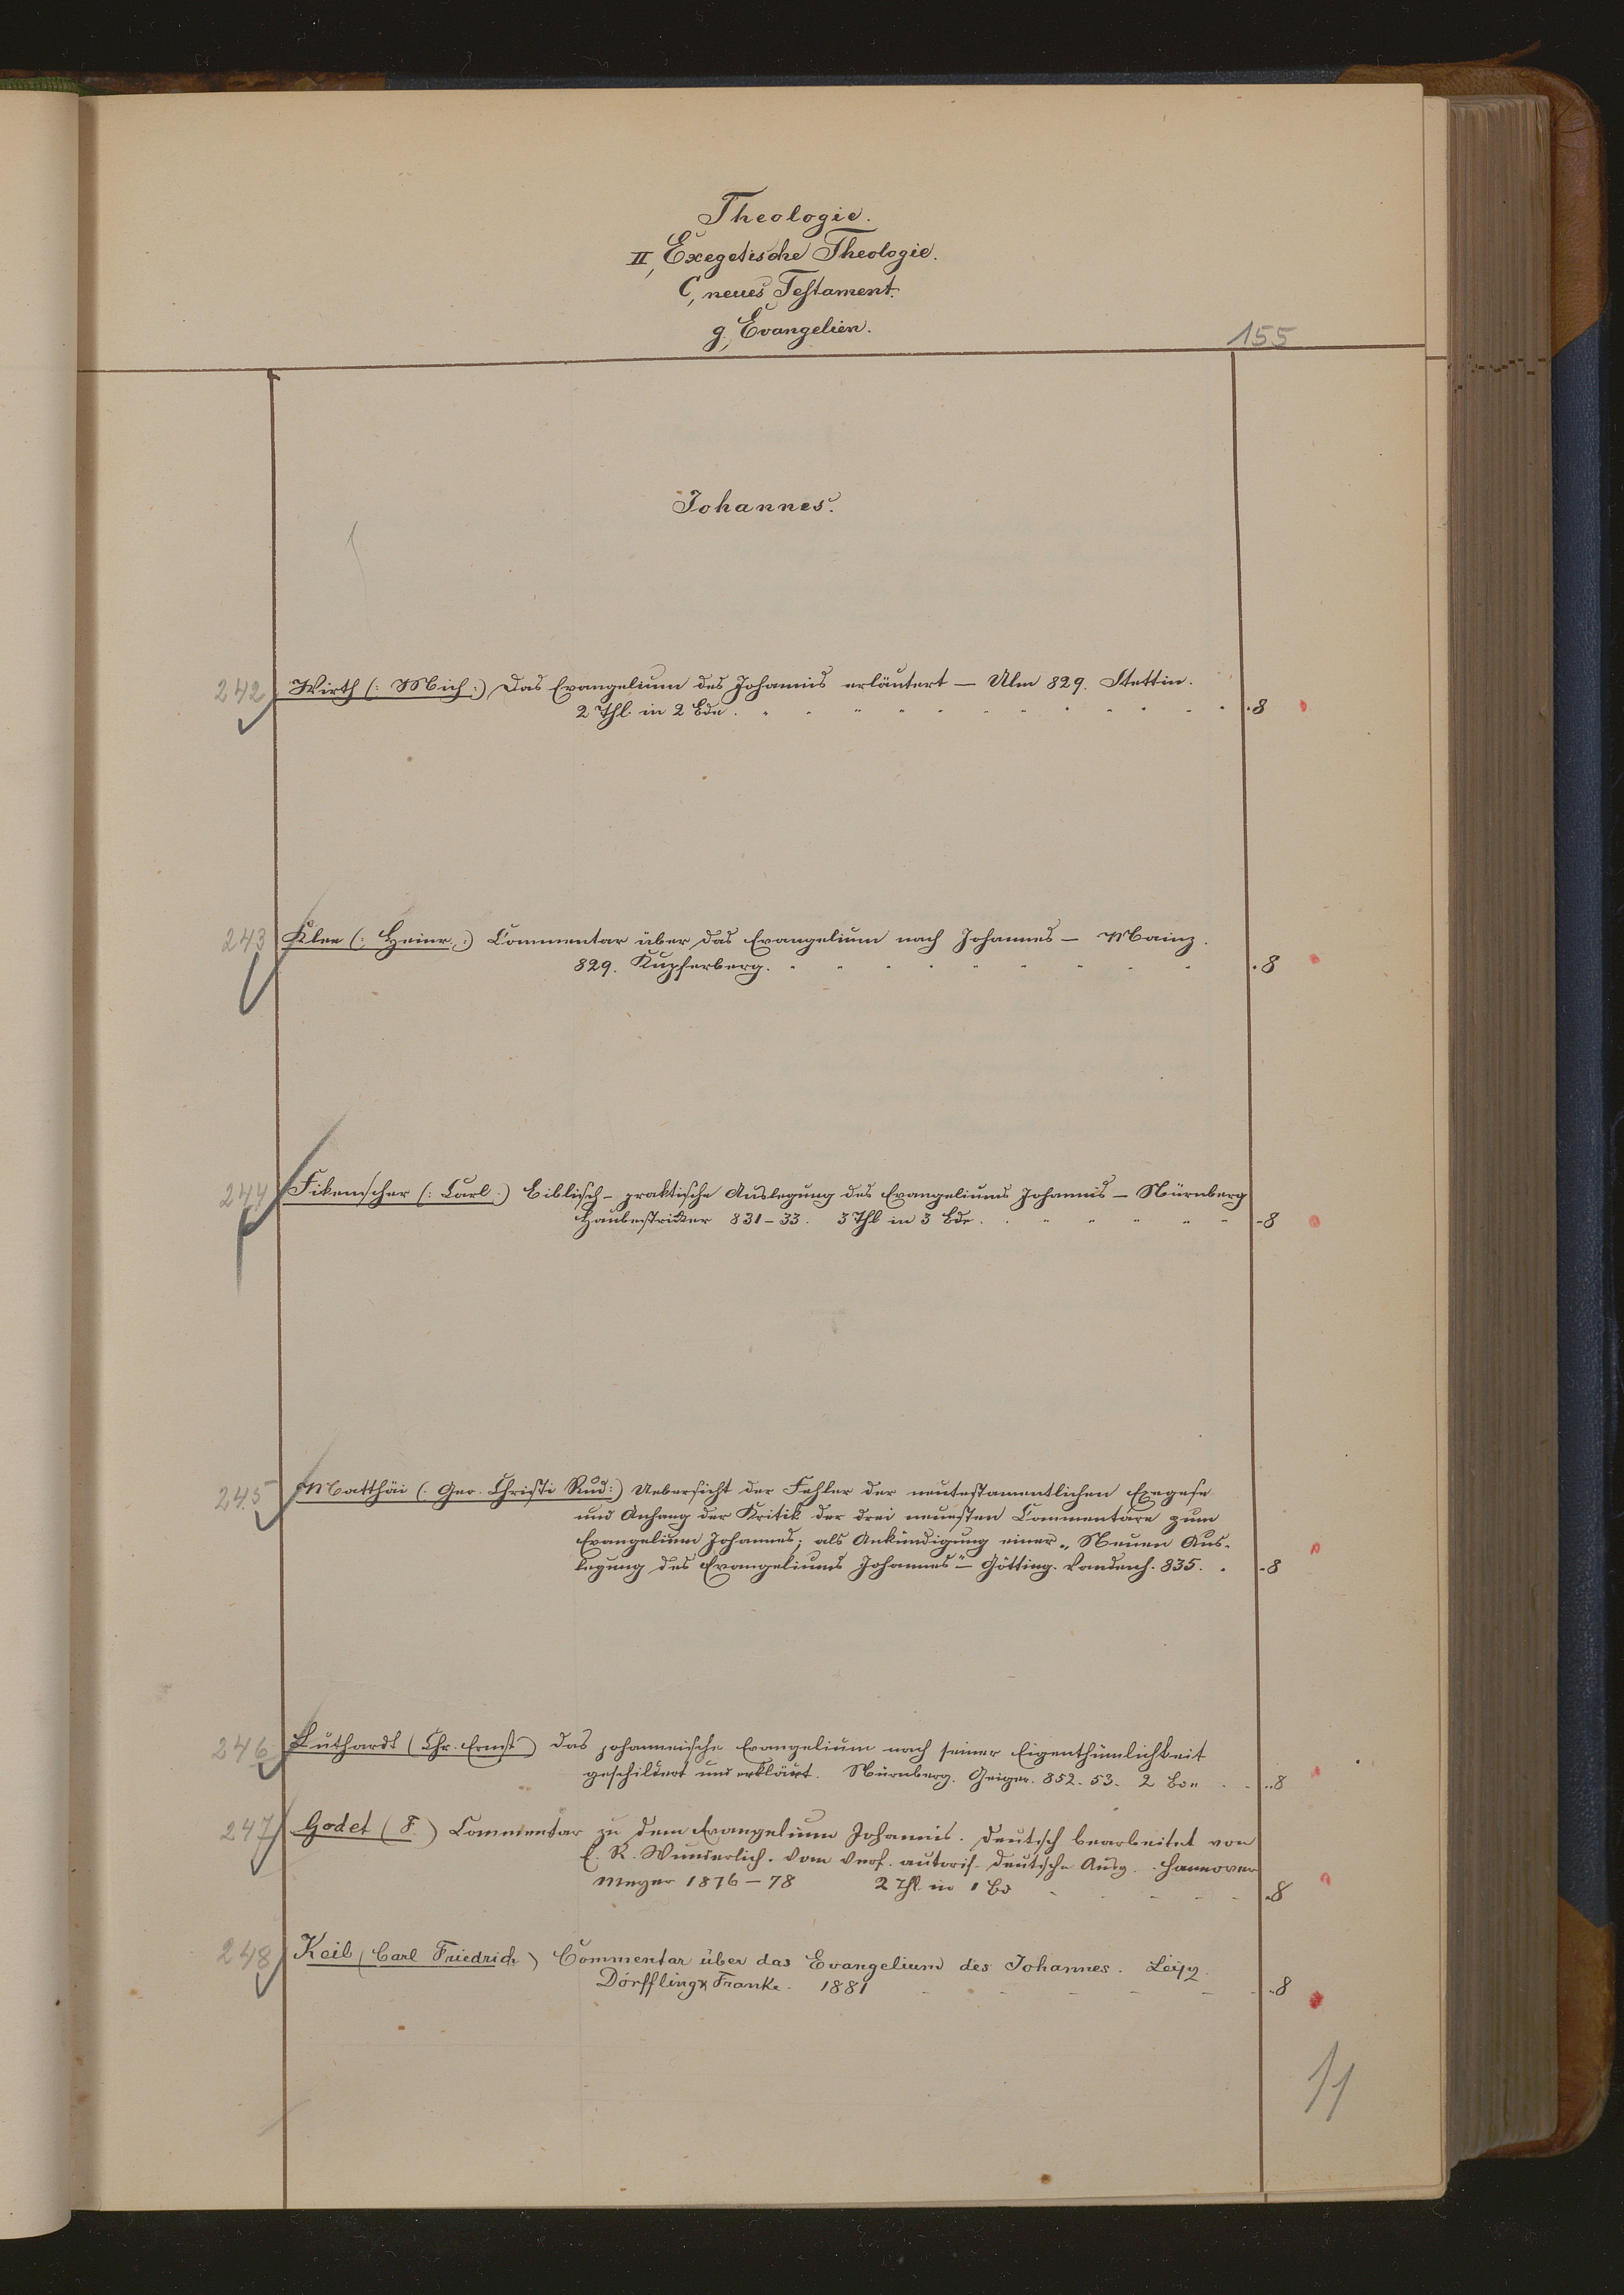 Theologie.
II, Exegetische Theologie.
C, neues Testament.
g., Evangelien.
155
Johannes.
242 Wirth (: Mich :) Das Evangelium des Johannis erläutert — Ulm 829. Stettin.
2 Thl. in 2 Bde. . 8
243 Klee (: Heinr. :) Commentar über das Evangelium nach Johannes — Mainz.
829. Kupferberg. . 8
244 Fikenscher (: Carl :) Biblisch-praktische Auslegung des Evangeliums Johannis — Nürnberg
Haubenstricker 831–33. 3 Thl in 3 Bde. . 8
245 Matthäi (: Geo. Christi Rud :) Uebersicht der Fehler der neutestamentlichen Exegese
und Anhang der Kritik der drei neuesten Commentäre zum
Evangelium Johannes; als Ankündigung einer „Neuen Aus-
legung des Evangeliums Johannes" — Götting. Vandenh. 835. . 8
246 Luthardt (Chr. Ernst) Das johanneische Evangelium nach seiner Eigenthümlichkeit
geschildert und erklärt. Nürnberg. Geiger. 852–53. 2 Bde . . 8
247 Godet (F.) Commentar zu dem Evangelium Johannis. Deutsch bearbeitet von
E. R. Wunderlich. Vom Verf. autoris. deutsche Ausg. Hannover
Meyer 1876–78 2 Thl. in 1 Bd . 8
248 Keil (Carl Friedrich) Commentar über das Evangelium des Johannes. Leipz.
Dörffling & Franke. 1881 . 8